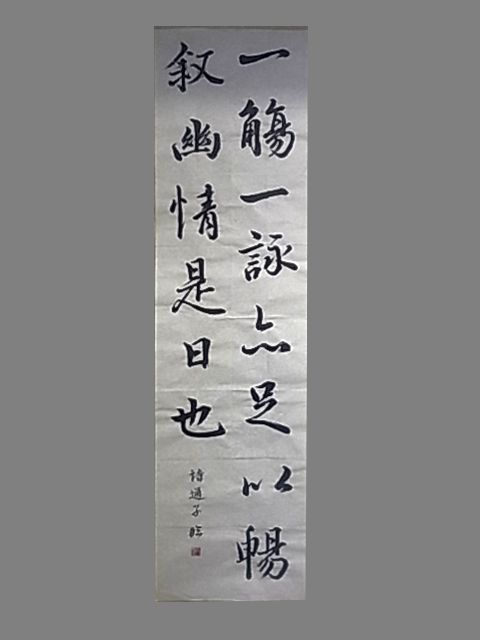 一觴一詠亦足以暢
叙幽情是日也
詩通子臨